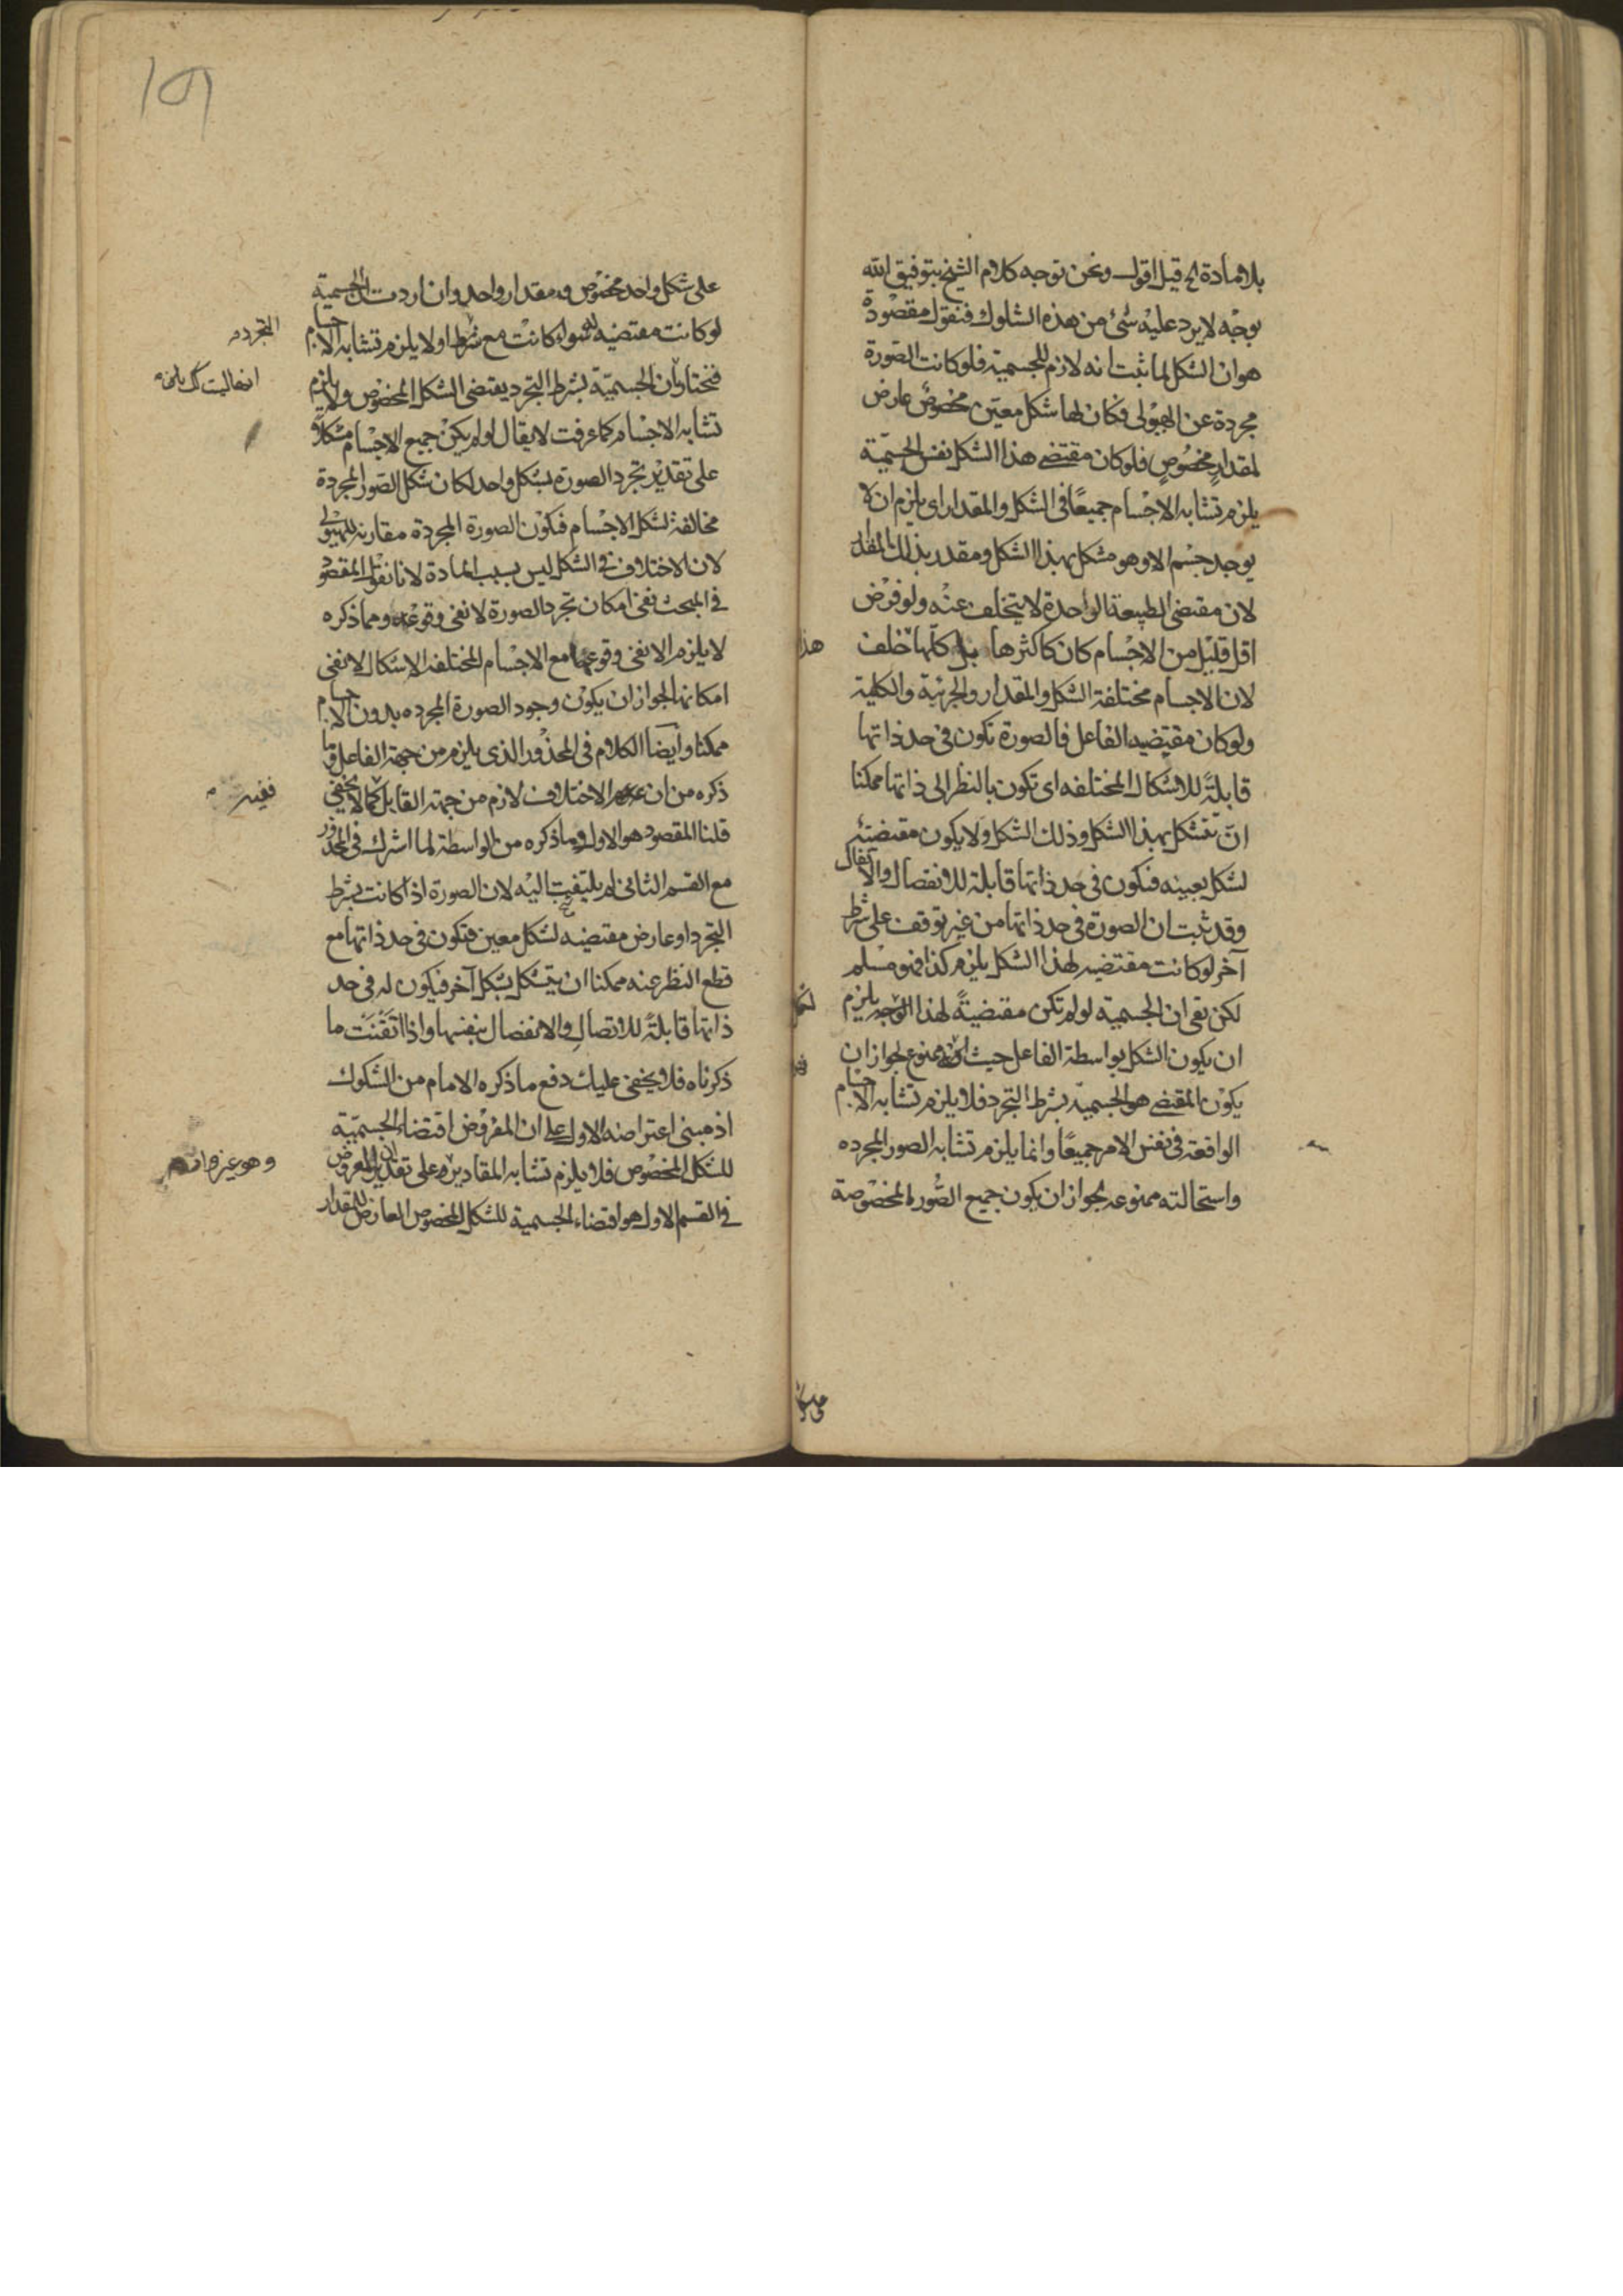 بلا مادة الخ قيل اقول ونحن نوجه كلام الشيخ بتوفيق الله
بوجه لا يرد عليه شئ من هذه الشكوك فنقول مقصوده
هو ان الشكل لما ثبت انه لازم للجسمية فلو كانت الصورة
مجردة عن الهيولى فكان لها شكل معين مخصوص عارض
لمقدار مخصوص فلو كان مقتضى هذا الشكل نفس الجسمية
يلزم تشابه الاجسام جميعًا فى الشكل والمقدار اى يلزم ان لا
يوجد جسم الا وهو مشكل بهذا الشكل ومقدر بذلك المقدار
لان مقتضى الطبيعة الواحدة لا يتخلف عنه ولو فرض
اقل قليل من الاجسام كان كاكثرها بل كلها خلف هذا
لان الاجسام مختلفة الشكل والمقدار والجزئية والكلية
ولو كان مقتضيه الفاعل فالصورة تكون فى حد ذاتها
قابلةً للاشكال المختلفه اى تكون بالنظر الى ذاتها ممكنا
ان تتشكل بهذا الشكل وذلك الشكل ولا يكون مقتضية
لشكل بعينه فتكون فى حد ذاتها قابلة للانفصال والاتصال
وقد ثبت ان الصورة فى حد ذاتها من غير توقف على شرط
آخر لو كانت مقتضيه لهذا الشكل يلزم كذا فهو مسلم
لكن بقى ان الجسمية لو لم تكن مقتضيةً لهذا الوجه يلزم
ان يكون الشكل بواسطة الفاعل حيث ممنوع لجواز ان
يكون المقتضى هو الجسمية بشرط التجرد فلا يلزم تشابه الاجسام
الواقعة فى نفس الامر جميعًا وانما يلزم تشابه الصور المجرده
واستحالته ممنوعه لجواز ان يكون جميع الصور المخصوصة
على شكل واحد مخصوص ومقدار واحد وان اردت ان الجسمية
لو كانت مقتضيه له سواء كانت مع شرط او لا يلزم تشابه الاجسام
فنختار ان الجسمية بشرط التجرد يقتضى الشكل المخصوص ولا يلزم
تشابه الاجسام كما عرفت لا يقال لو لم يكن جميع الاجسام مشكلاً
على تقدير تجرد الصورة بشكل واحد لكان شكل الصور المجردة
مخالفة لشكل الاجسام فتكون الصورة المجردة مقارنه للهيولى
لان الاختلاف فى الشكل ليس بسبب المادة لانا نقول المقصود
فى المبحث نفى امكان تجرد الصورة لا نفى وقوعه ومما ذكره
لا يلزم الا نفى وقوعها مع الاجسام المختلفة الاشكال لا نفى
امكانها لجواز ان يكون وجود الصورة المجرده بدون الاجسام
ممكنا وايضا الكلام فى المحذور الذى يلزم من جهة الفاعل وما
ذكره من ان عدم الاختلاف لازم من جهة القابل كما لا يخفى
قلنا المقصود هو الاول وما ذكره من الواسطة لما اشترك فى المحذور
مع القسم الثانى لم يلتفت اليه لان الصورة اذا كانت بشرط
التجرد او عارض مقتضيه لشكل معين فتكون فى حد ذاتها مع
قطع النظر عنه ممكنا ان يتشكل بشكل آخر فيكون له فى حد
ذاتها قابلةً للاتصال والانفصال بنفسها واذا اتقنت ما
ذكرناه فلا يخفى عليك دفع ما ذكره الامام من الشكوك
اذ مبنى اعتراضه الاول على ان المفروض اقتضاء الجسمية
للشكل المخصوص فلا يلزم تشابه المقادير على تقدير ان المفروض
فى القسم الاول هو اقتضاء الجسمية للشكل المخصوص العارض للمقدار